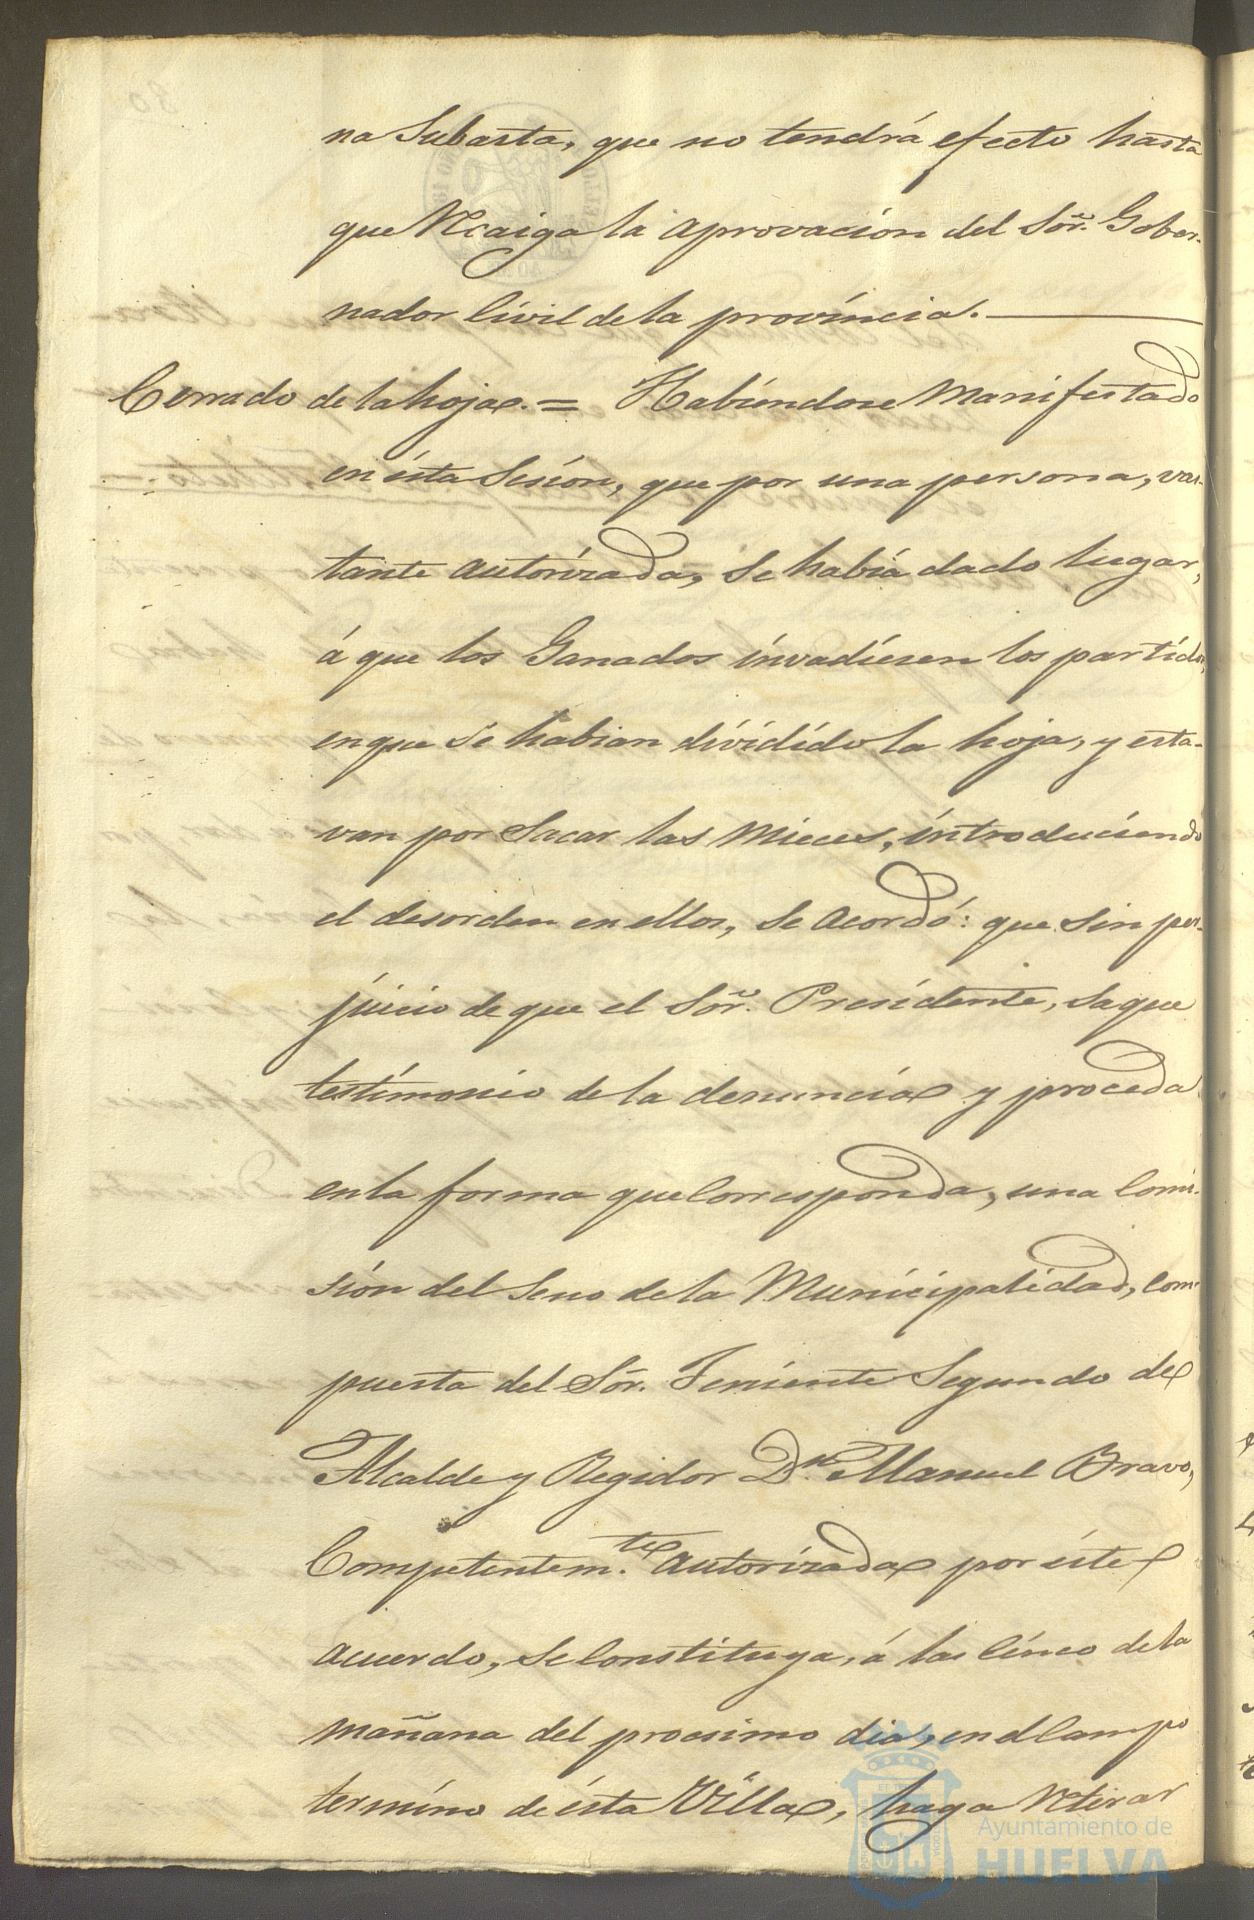 na Subasta, que no tendrá efecto hasta
que Recaiga la aprovacion del Sõr. Gober-
nador Civil de la província.
Cerrado de la hoja. = Habiendose Manifestado
en ésta Sesión, que por una persona, vas-
tante autorizada, se había dado lugar,
á que los Ganados invadiesen los partidos,
en que se habian dividido la hoja, y esta-
van por Sacar las Mieces, introduciendo
el desorden en ellos, se acordó: que sin per-
juicio de que el Sõr. Presidente, saque
testimonio de la denuncia y proceda
en la forma que Corresponda, una Comi-
sión del Seno de la Municipalidad, com-
puesta del Sõr. Teniente Segundo de
Alcalde y Regidor Dn. Manuel Bravo,
Competentem.te autorizada por éste
acuerdo, se Constituya, á las Cinco de la
mañana del procsimo dia, en el Campo
término de ésta Villa, haga Retirar
Ayuntamiento de
HUELVA